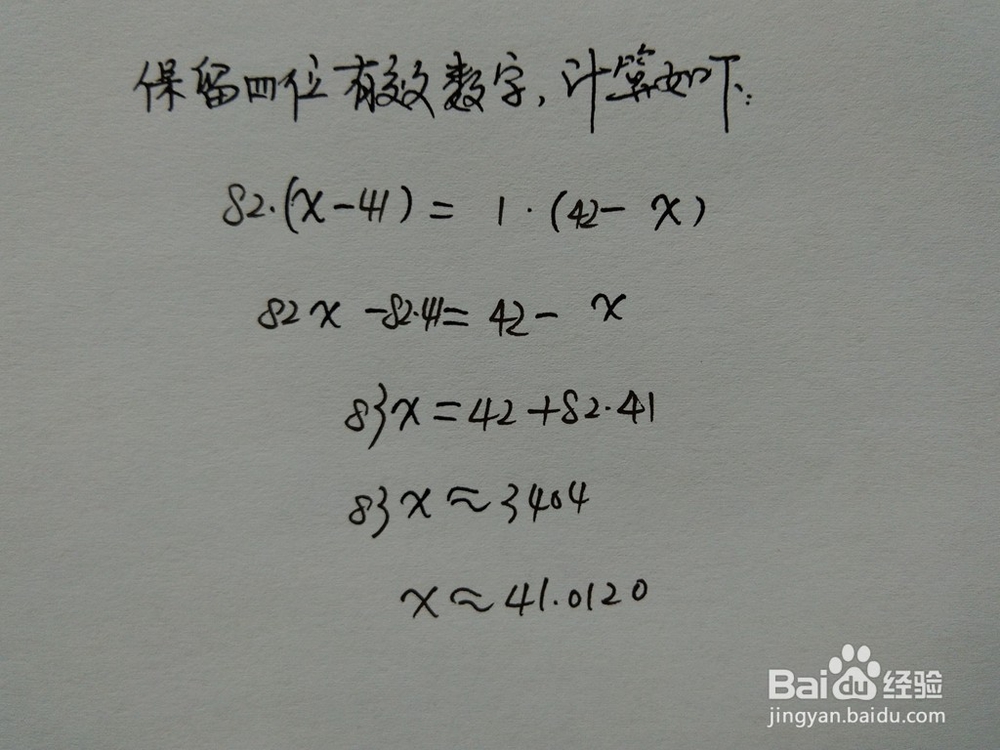 保留四位有效数字，计算如下：
82·(x-41) = 1·(42-x)
82x-82·41=42-x
83x=42+82·41
83x≈3404
x≈41.0120
Baidu经验
jingyan.baidu.com